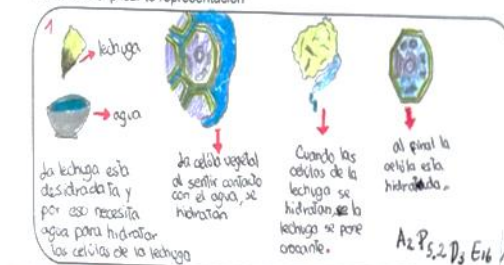 representación
1
lechuga
agua
la lechuga esta
desidradaTa y
por eso necesita
agua para hidratar
las celulas de la lechuga
la celula vegetal
al sentir contacto
con el agua, se
hidratan
Cuando las
celulas de la
lechuga se
hidratan, la
lechuga se pone
crocante.
al final la
celula esta
hidratada.
A2 P5,2 D3 E16